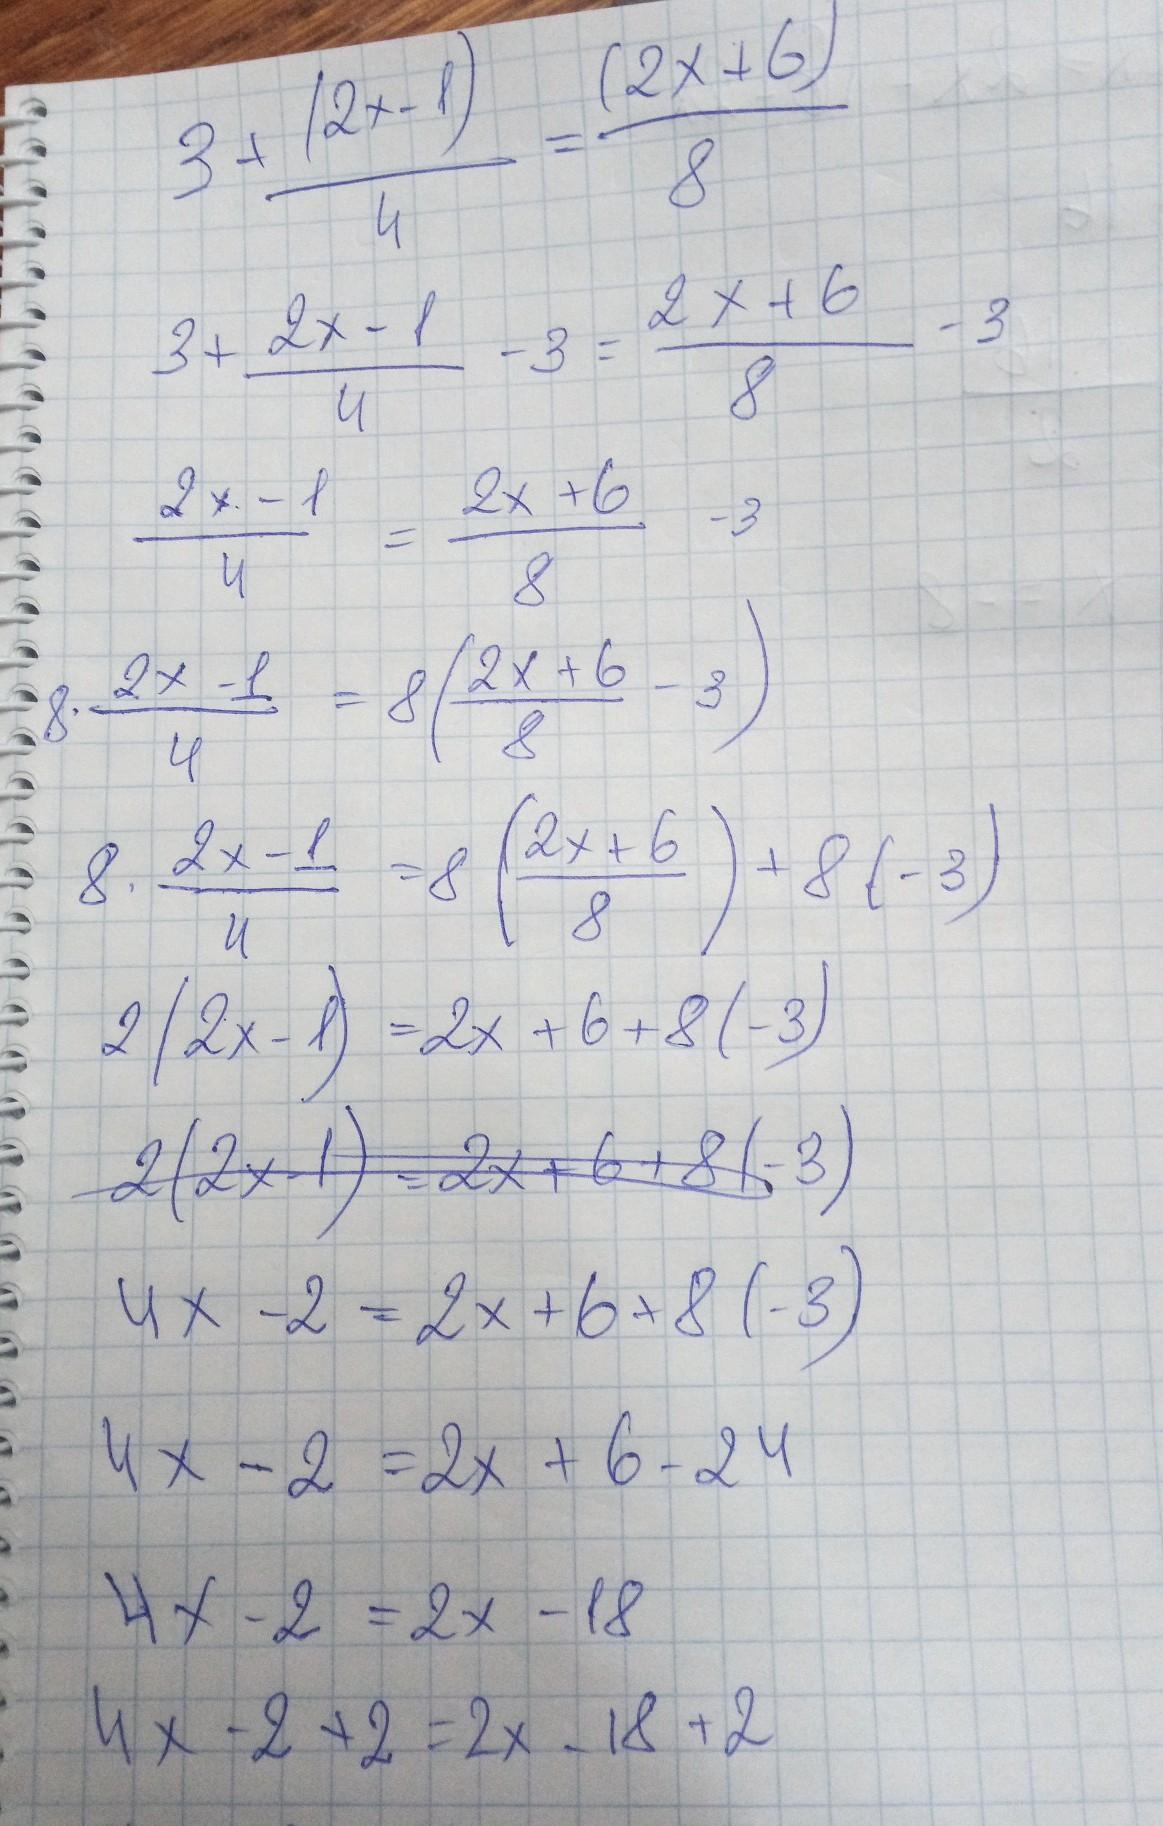 3 + (2x - 1)/4 = (2x + 6)/8
3 + 2x - 1/4 - 3 = 2x + 6/8 - 3
2x - 1/4 = 2x + 6/8 - 3
8 · 2x - 1/4 = 8(2x + 6/8 - 3)
8 · 2x - 1/4 = 8(2x + 6/8) + 8(-3)
2(2x - 1) = 2x + 6 + 8(-3)
2(2x - 1) = 2x + 6 + 8(-3)
4x - 2 = 2x + 6 + 8(-3)
4x - 2 = 2x + 6 - 24
4x - 2 = 2x - 18
4x - 2 + 2 = 2x - 18 + 2